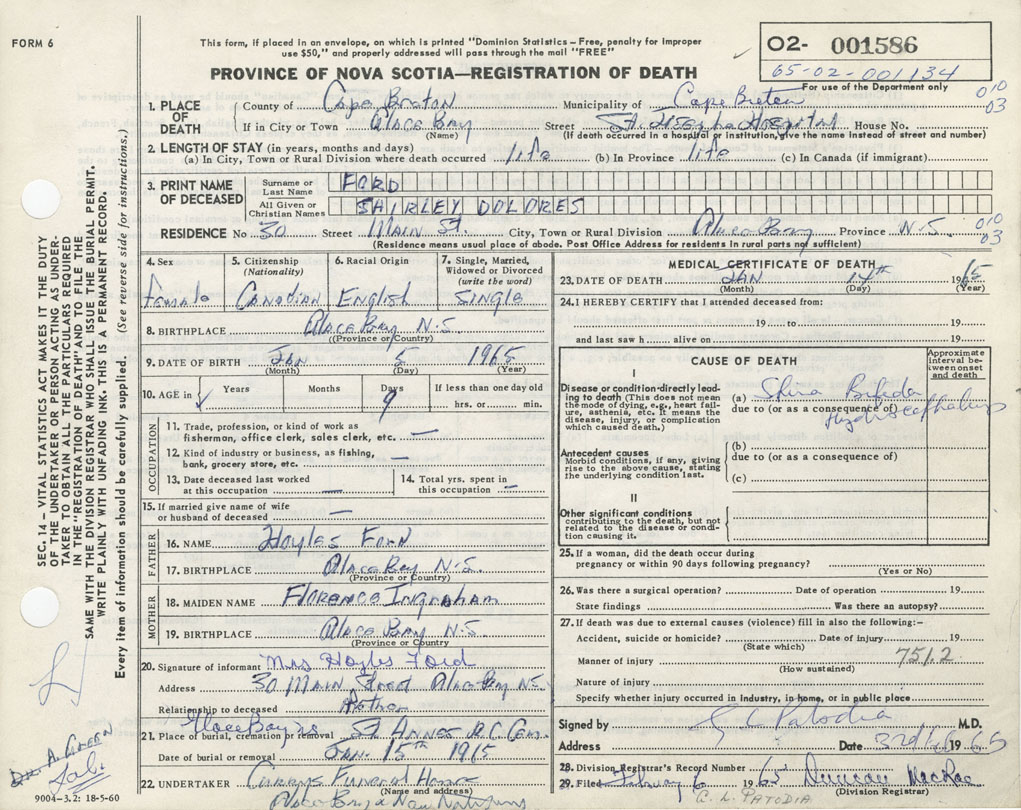 FORM 6
This form, if placed in an envelope, on which is printed "Dominion Statistics – Free, penalty for improper
use $50," and properly addressed will pass through the mail "FREE"
O2- 001586
65-02-001134
For use of the Department only
PROVINCE OF NOVA SCOTIA—REGISTRATION OF DEATH
1. PLACE OF DEATH
County of Cape Breton Municipality of Cape Breton
010
03
If in City or Town Glace Bay Street St. Josephs Hospital House No.
(Name) (If death occurred in a hospital or institution, give the name instead of street and number)
2. LENGTH OF STAY (in years, months and days)
(a) In City, Town or Rural Division where death occurred life (b) In Province life (c) In Canada (if immigrant)
3. PRINT NAME OF DECEASED
Surname or Last Name FORD
All Given or Christian Names SHIRLEY DOLORES
RESIDENCE No 30 Street MAIN St. City, Town or Rural Division Glace Bay Province N.S.
010
03
(Residence means usual place of abode. Post Office Address for residents in rural parts not sufficient)
4. Sex
female
5. Citizenship
(Nationality)
Canadian
6. Racial Origin
English
7. Single, Married,
Widowed or Divorced
(write the word)
Single
8. BIRTHPLACE Glace Bay N.S.
(Province or Country)
9. DATE OF BIRTH Jan 5 1965
(Month) (Day) (Year)
10. AGE in Years Months Days If less than one day old
9 hrs. or min.
OCCUPATION
11. Trade, profession, or kind of work as
fisherman, office clerk, sales clerk, etc. —
12. Kind of industry or business, as fishing,
bank, grocery store, etc. —
13. Date deceased last worked
at this occupation —
14. Total yrs. spent in
this occupation —
15. If married give name of wife
or husband of deceased —
FATHER
16. NAME Hoyles Ford
17. BIRTHPLACE Glace Bay N.S.
(Province or Country)
MOTHER
18. MAIDEN NAME Florence Ingraham
19. BIRTHPLACE Glace Bay N.S.
(Province or Country)
20. Signature of informant Mrs Hoyles Ford
Address 30 Main Street Glace Bay N.S.
Relationship to deceased
Glace Bay N.S.
21. Place of burial, cremation or removal St. Annes R.C. Cem.
Date of burial or removal Jan. 15th 1965
22. UNDERTAKER Currys Funeral Home
(Name and address)
Glace Bay & New Waterford
MEDICAL CERTIFICATE OF DEATH
23. DATE OF DEATH JAN 14th 1965
(Month) (Day) (Year)
24. I HEREBY CERTIFY that I attended deceased from:
19 to 19
and last saw h alive on 19
CAUSE OF DEATH
Approximate interval between onset and death
I
Disease or condition directly leading to death (This does not mean the mode of dying, e.g., heart failure, asthenia, etc. It means the disease, injury, or complication which caused death.)
(a) Spina Bifida
due to (or as a consequence of)
Hydrocephalus
Antecedent causes
Morbid conditions, if any, giving rise to the above cause, stating the underlying condition last.
(b)
due to (or as a consequence of)
(c)
II
Other significant conditions
contributing to the death, but not related to the disease or condition causing it.
25. If a woman, did the death occur during
pregnancy or within 90 days following pregnancy?
(Yes or No)
26. Was there a surgical operation? Date of operation 19
State findings Was there an autopsy?
27. If death was due to external causes (violence) fill in also the following:–
Accident, suicide or homicide? Date of injury 19
(State which)
Manner of injury 751.2
(How sustained)
Nature of injury
Specify whether injury occurred in industry, in home, or in public place
Signed by G C Patodia M.D.
Address Date 1965
28. Division Registrar's Record Number
29. Filed February 6 1965 Duncan MacRae
(Division Registrar)
PATODIA
SEC. 14 – VITAL STATISTICS ACT MAKES IT THE DUTY
OF THE UNDERTAKER OR PERSON ACTING AS UNDER-
TAKER TO OBTAIN ALL THE PARTICULARS REQUIRED
IN THE "REGISTRATION OF DEATH" AND TO FILE THE
SAME WITH THE DIVISION REGISTRAR WHO SHALL ISSUE THE BURIAL PERMIT.
WRITE PLAINLY WITH UNFADING INK. THIS IS A PERMANENT RECORD.
Every item of information should be carefully supplied. (See reverse side for instructions.)
9004–3.2: 18-5-60